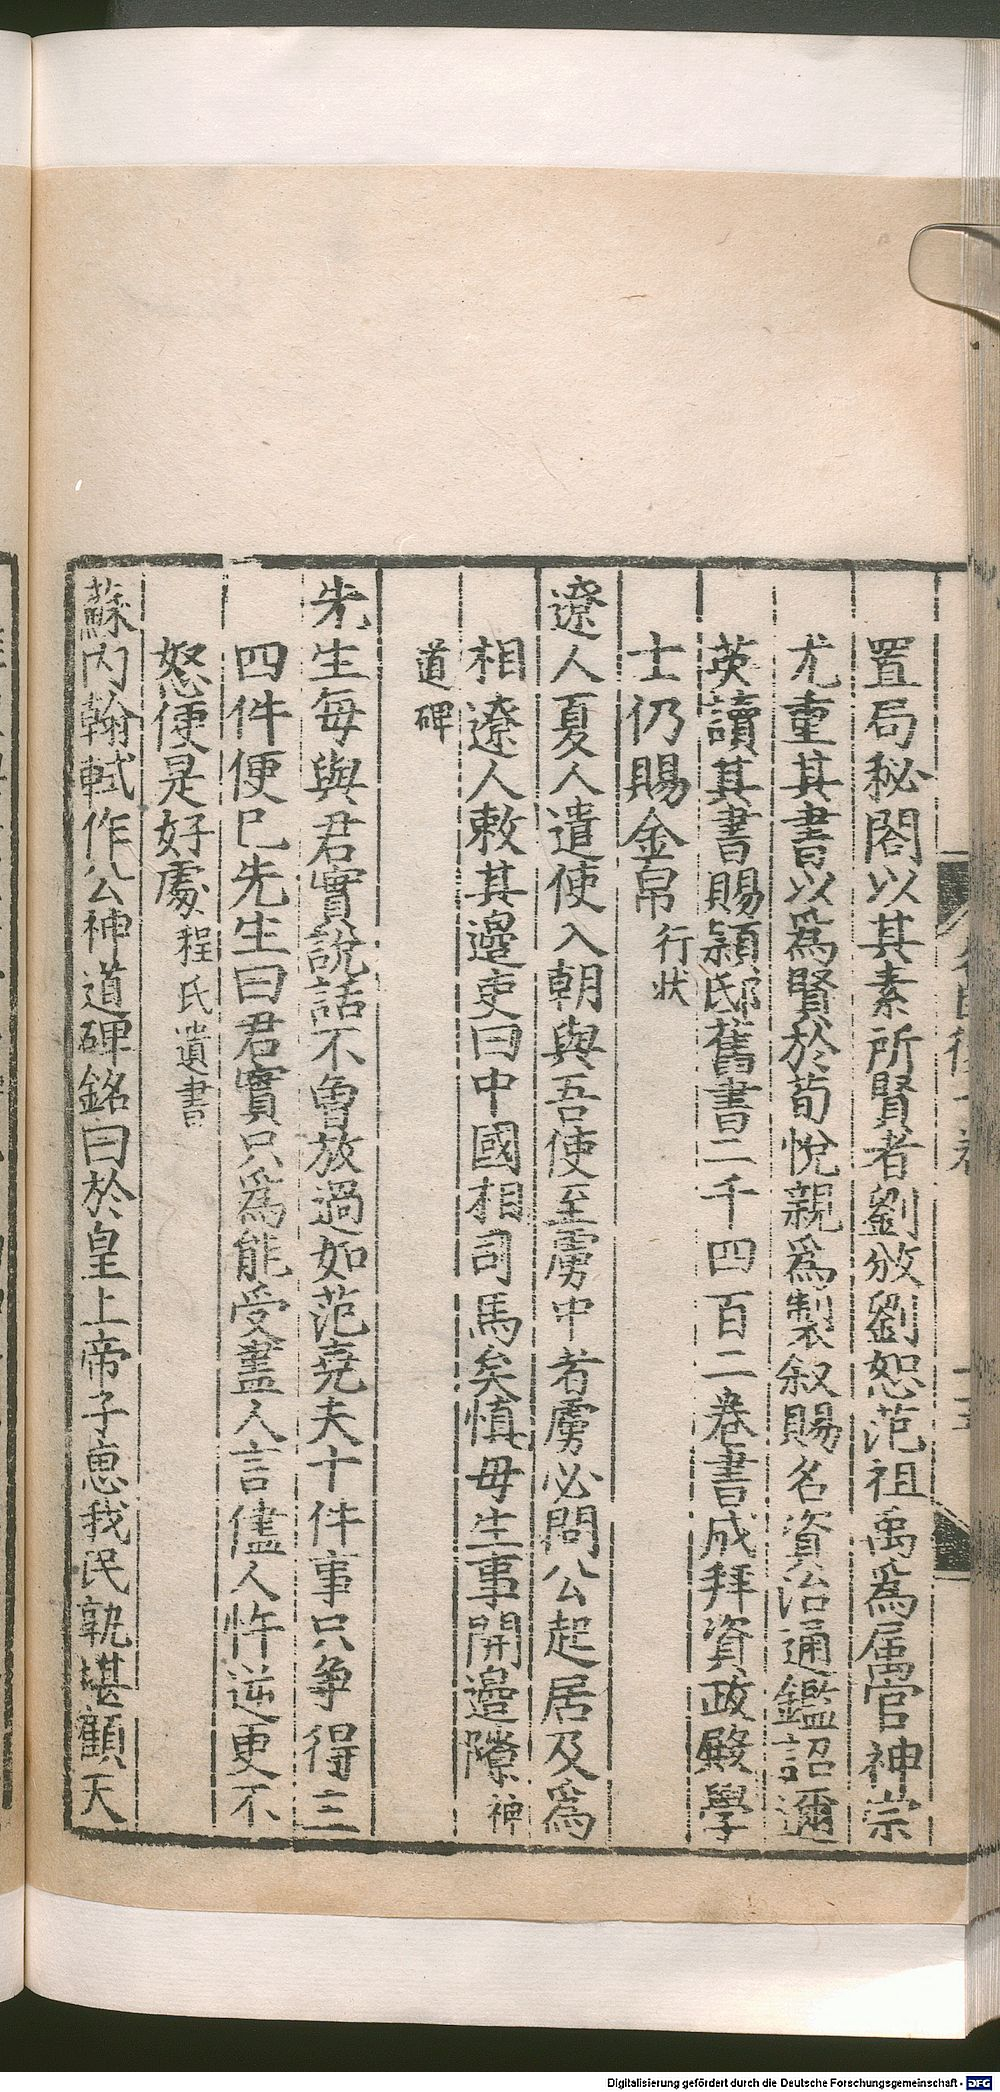 置局秘閣以其素所賢者劉攽劉恕范祖禹爲属官神宗
尤重其書以爲賢於荀悅親爲製叙賜名資治通鑑詔邇
英讀其書賜頴邸舊書二千四百二卷書成拜資政殿學
士仍賜金帛行状
遼人夏人遣使入朝與吾使至虜中者虜必問公起居及爲
相遼人敕其邊吏曰中國相司馬矣慎毋生事開邊隙神
道碑
先生每與君實說話不曾放過如范堯夫十件事只争得三
四件便已先生曰君實只爲能受盡人言儘人忤逆更不
怒便是好處程氏遺書
蘇内翰軾作公神道碑銘曰於皇上帝子惠我民孰堪顧天
Digitalisierung gefördert durch die Deutsche Forschungsgemeinschaft - DFG